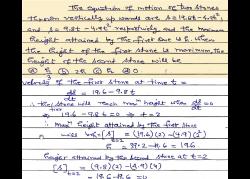 The equation of motion of two stones
thrown vertically up words are s = 19.6t - 4.9t²,
and s = 9.8t - 4.9t² respectively and the maximum
height attained by the first one is h. When
the height of the first stone is maximum, the
height of the second stone will be
a) h/3 b) 2h c) h d) 0
velocity of the first stone at time t =
ds/dt = 19.6 - 9.8t
∴ the stone will reach max^m height when ds/dt = 0
⇒ 19.6 - 9.8t = 0 ⇒ t = 2
∴ max^m height attained by the first stone
was h = [s] t=2 = (19.6)(2) - (4.9)(2²)
h = 39.2 - 19.6 = 19.6
height attained by the second stone at t = 2
[s] t=2 = (9.8)(2) - (4.9)(4)
= 19.6 - 19.6 = 0